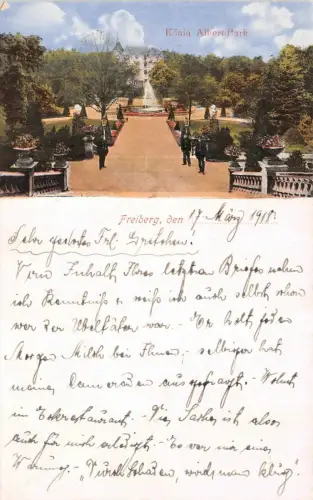 König Albert-Park
Freiberg, den 17. März 1918.
Sehr geehrtes Frl. Gretchen.
Vom Inhalt Ihres letzten Briefes nehm
ich Kenntniß u. weiß ich auch selbst schon
wer der Übeltäter war. - Er holt jeden
Morgen Milch bei Ihnen, - selbiger hat
meine Cameraden ausgefragt. - Wohnt
in Eckrestaurant. - Die Sache ist also
auch für mich erledigt. - Es war mir eine
Warnung. - "Durch Schaden, wird man klug".